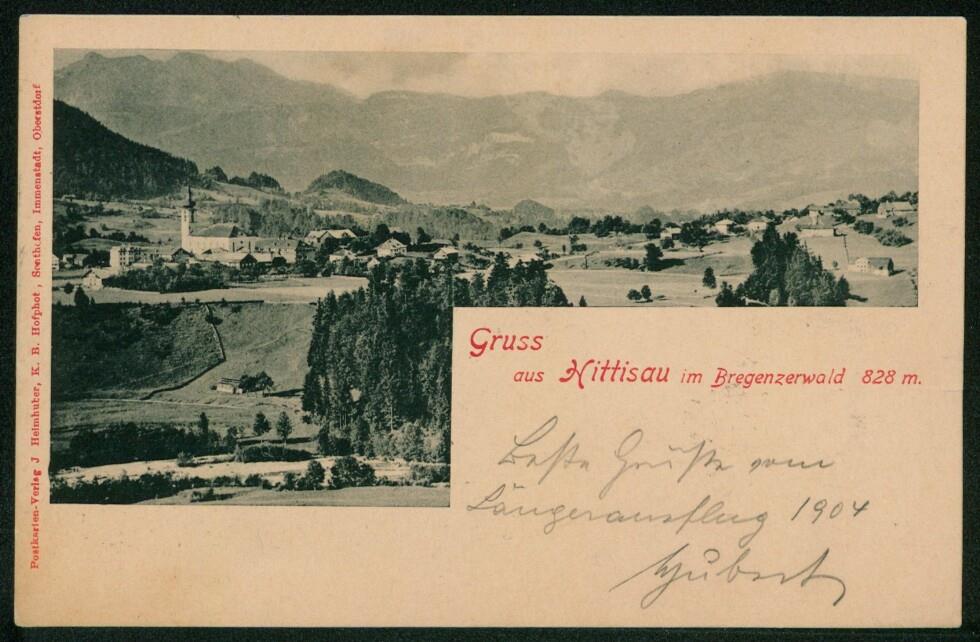 Gruss
aus Hittisau im Bregenzerwald 828 m.
Beste Grüße vom
Sängerausflug 1904
Hubert
Postkarten-Verlag J Heimhuber, K. B. Hofphot, Sonthofen, Immenstadt, Oberstdorf